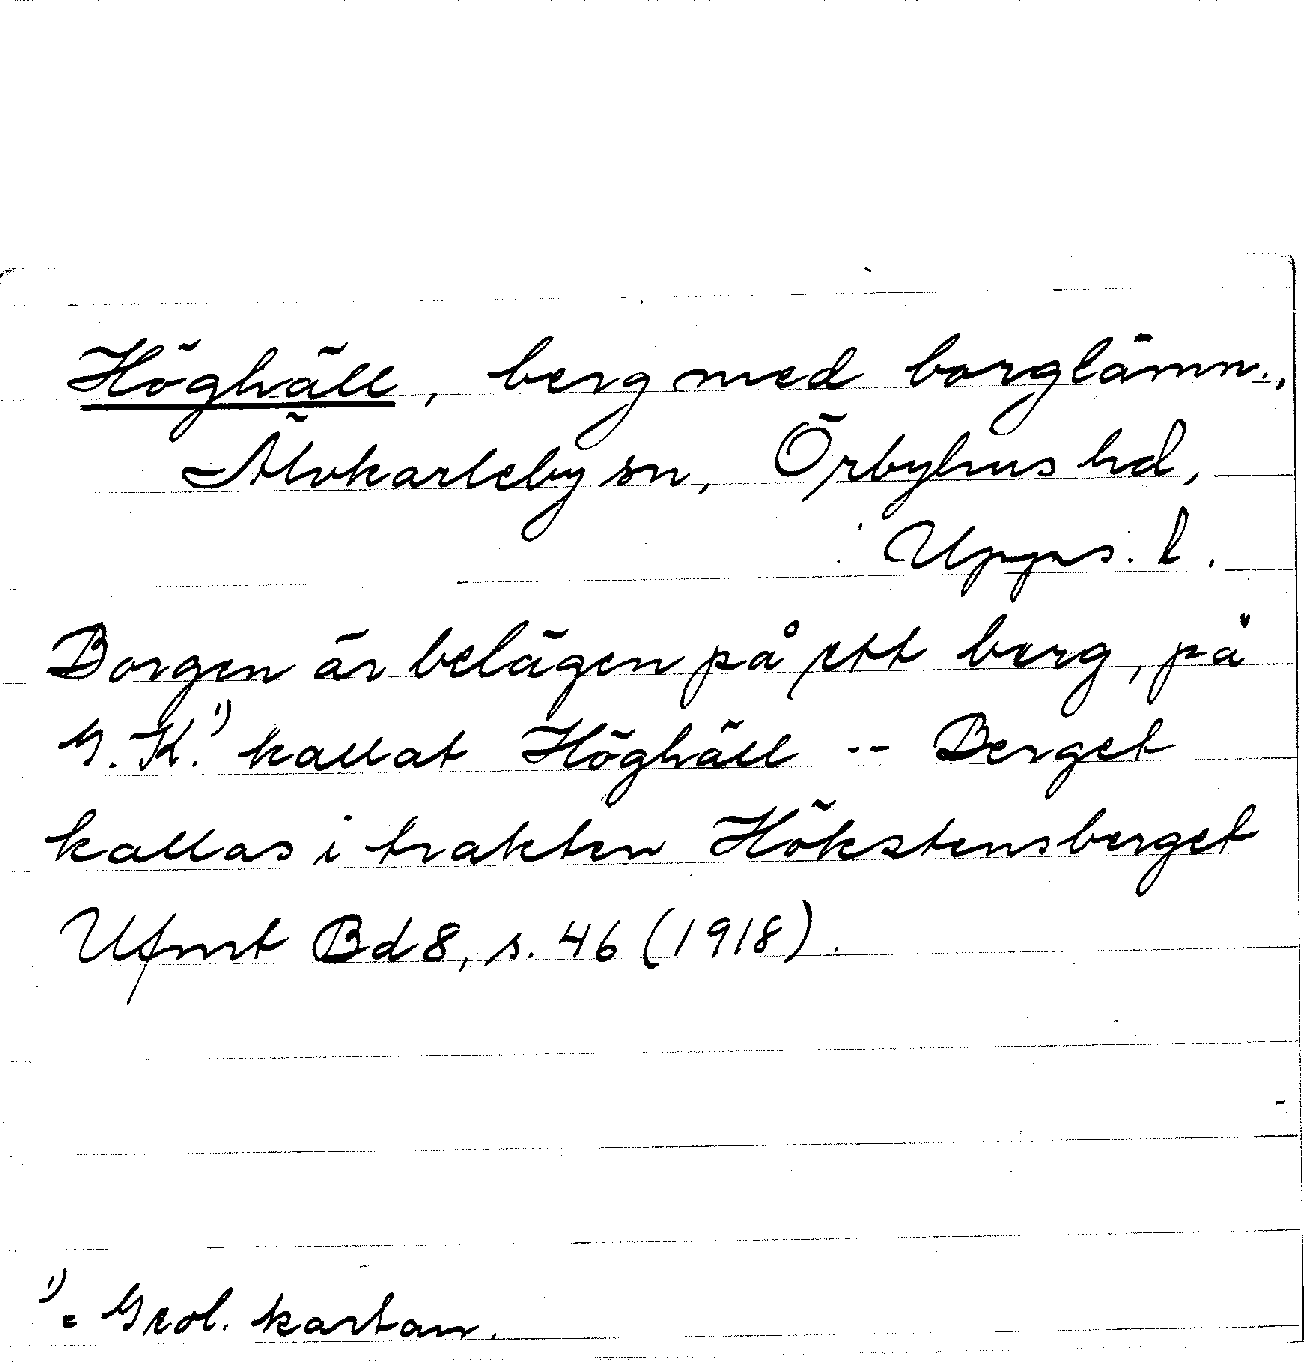 Höghäll, berg med borglämn.,
Älvkarleby sn, Örbyhus hd,
Upps. l.
Borgen är belägen på ett berg, på
G. K.¹⁾ kallat Höghäll -- Berget
kallas i trakten Hökstensberget
Ufmt Bd 8, s. 46 (1918).
¹⁾ = Geol. kartan.